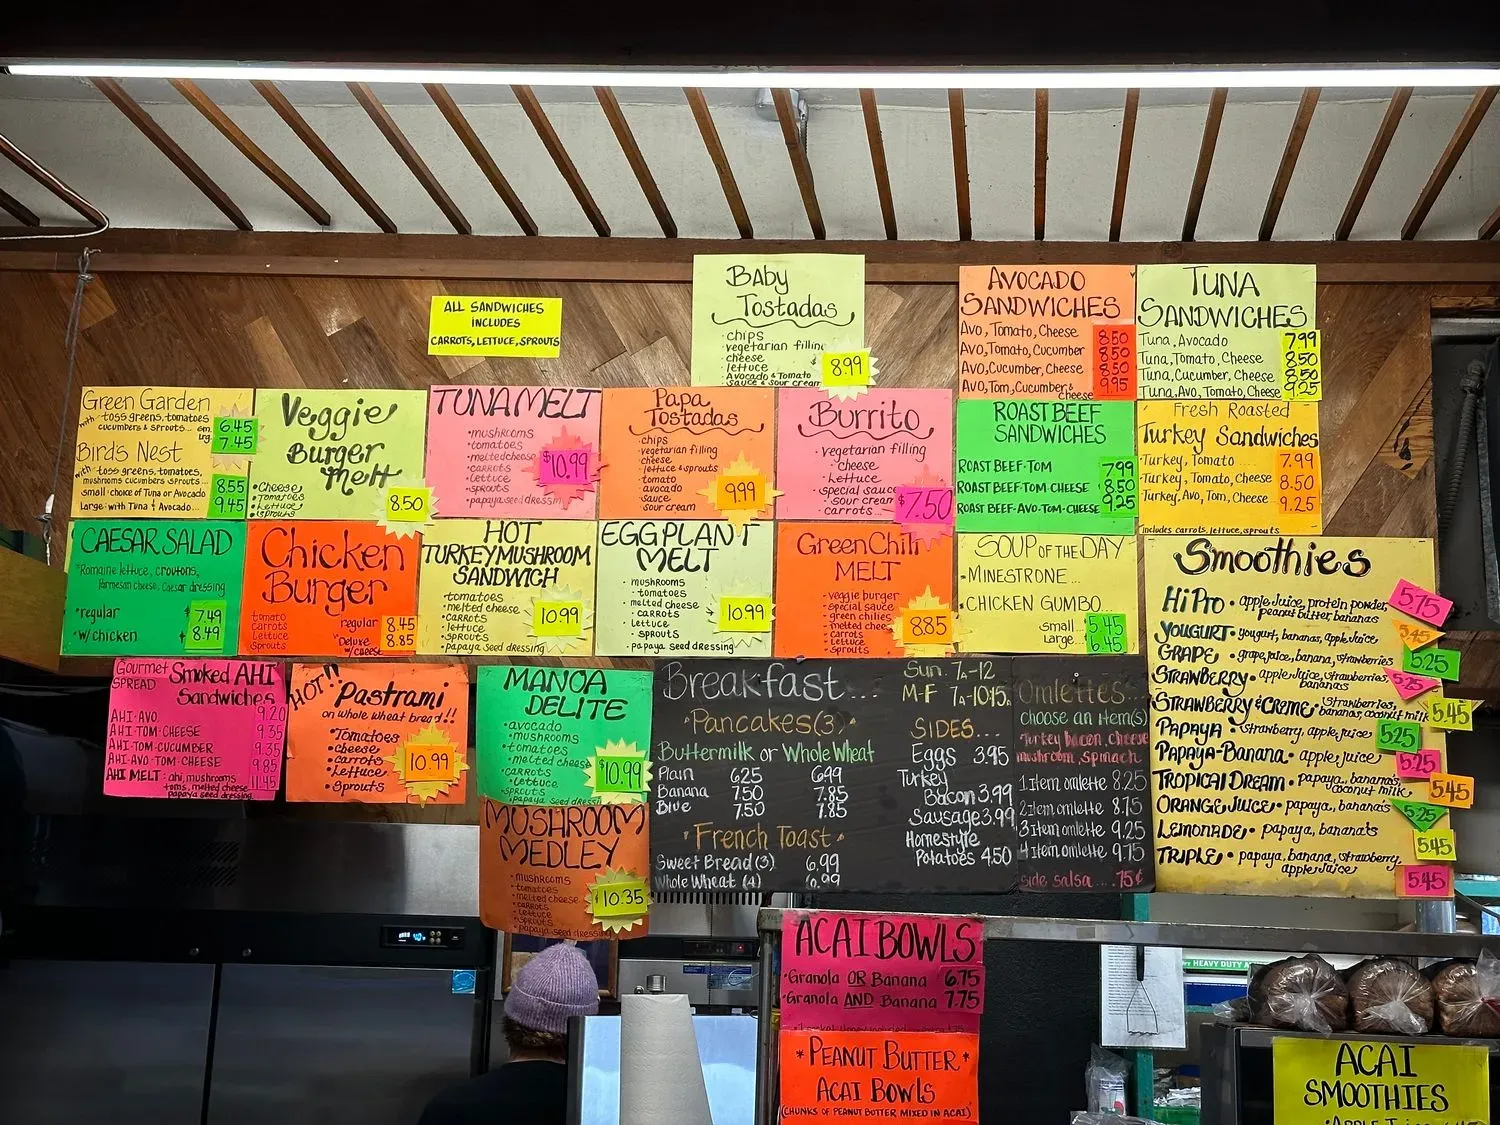 ALL SANDWICHES
INCLUDES
CARROTS, LETTUCE, SPROUTS
BABY
TOSTADAS
• chips
• vegetarian filling
• cheese
• lettuce
• Avocado & Tomato
• sauce & sour cream
8.99
AVOCADO
SANDWICHES
Avo, Tomato, Cheese 8.50
Avo, Tomato, Cucumber 8.50
Avo, Cucumber, Cheese 8.50
Avo, Tom, Cucumber & cheese 9.95
TUNA
SANDWICHES
Tuna, Avocado 7.99
Tuna, Tomato, Cheese 8.50
Tuna, Cucumber, Cheese 8.50
Tuna, Avo, Tomato, Cheese 9.25
Green Garden
with toss greens, tomatoes
cucumbers & sprouts... sm. 6.45
lrg. 7.45
Birds Nest
with toss greens, tomatoes,
mushrooms cucumbers sprouts...
small - choice of Tuna or Avocado 8.55
Large - with Tuna & Avocado... 9.45
Veggie
Burger
Melt
• Cheese
• Tomatoes
• Lettuce
• Sprouts
8.50
TUNA MELT
• mushrooms
• tomatoes
• melted cheese
• carrots
• Lettuce
• sprouts
• papaya seed dressing
$10.99
Papa
Tostadas
• chips
• vegetarian filling
• cheese
• lettuce & sprouts
• tomato
• avocado
• sauce
• sour cream
9.99
Burrito
• vegetarian filling
• cheese
• Lettuce
• special sauce
• sour cream
• carrots
$7.50
ROAST BEEF
SANDWICHES
ROAST BEEF-TOM 7.99
ROAST BEEF-TOM-CHEESE 8.50
ROAST BEEF-AVO-TOM-CHEESE 9.25
Fresh Roasted
Turkey Sandwiches
Turkey, Tomato.... 7.99
Turkey, Tomato, Cheese 8.50
Turkey, Avo, Tom, Cheese 9.25
includes carrots, lettuce, sprouts
CAESAR SALAD
*Romaine lettuce, croutons,
Parmesan cheese, Caesar dressing
• regular $7.49
• w/ chicken $8.49
Chicken
Burger
tomato
carrots
Lettuce
Sprouts
regular 8.45
"Deluxe w/cheese 8.85
HOT
TURKEY MUSHROOM
SANDWICH
• tomatoes
• melted cheese
• carrots
• lettuce
• sprouts
• papaya seed dressing
10.99
EGGPLANT
MELT
• mushrooms
• tomatoes
• melted cheese
• carrots
• lettuce
• sprouts
• papaya seed dressing
10.99
Green Chili
MELT
• veggie burger
• special sauce
• green chilies
• melted cheese
• carrots
• lettuce
• sprouts
8.85
SOUP OF THE DAY
• MINESTRONE...
• CHICKEN GUMBO...
small 5.45
Large.. 6.45
Smoothies
Hi Pro • apple juice, protein powder,
peanut butter, bananas 5.75
YOUGURT • yougurt, bananas, apple juice 5.45
GRAPE • grape juice, banana, strawberries 5.25
STRAWBERRY • apple juice, strawberries,
bananas 5.25
STRAWBERRY & CREME • strawberries,
bananas, coconut milk 5.45
PAPAYA • strawberry, apple juice 5.25
PAPAYA-BANANA • apple juice 5.25
TROPICAL DREAM • papaya, bananas,
coconut milk 5.45
ORANGE JUICE • papaya, banana's 5.25
LEMONADE • papaya, banana's 5.45
TRIPLE • papaya, banana, strawberry,
apple juice 5.45
Gourmet SPREAD Smoked AHI
Sandwiches
AHI-AVO 9.20
AHI-TOM-CHEESE 9.35
AHI-TOM-CUCUMBER 9.35
AHI-AVO-TOM-CHEESE 9.85
AHI MELT: ahi, mushrooms 11.45
toms, melted cheese
papaya seed dressing
HOT!! Pastrami
on whole wheat bread!!
• Tomatoes
• cheese
• carrots
• Lettuce
• Sprouts
10.99
MANOA
DELITE
• avocado
• mushrooms
• tomatoes
• melted cheese
• carrots
• lettuce
• sprouts
• papaya seed dressing
$10.99
MUSHROOM
MEDLEY
• mushrooms
• tomatoes
• melted cheese
• carrots
• Lettuce
• sprouts
• papaya seed dressing
10.35
Breakfast...
Sun. 7A-12
M-F 7A-10:15A
"Pancakes (3)"
Buttermilk or Whole Wheat
Plain 6.25 6.99
Banana 7.50 7.85
Blue 7.50 7.85
"French Toast"
Sweet Bread (3) 6.99
Whole Wheat (4) 6.99
SIDES...
Eggs 3.95
Turkey
Bacon 3.99
Sausage 3.99
Homestyle
Potatoes 4.50
Omlettes..
Choose an item(s)
Turkey bacon, cheese
mushroom, spinach
1 Item omlette 8.25
2 Item omlette 8.75
3 Item omlette 9.25
4 Item omlette 9.75
side salsa.... .75¢
ACAI BOWLS
• Granola OR Banana 6.75
• Granola AND Banana 7.75
* PEANUT BUTTER *
ACAI BOWLS
(CHUNKS OF PEANUT BUTTER MIXED IN ACAI)
HEAVY DUTY
ACAI
SMOOTHIES